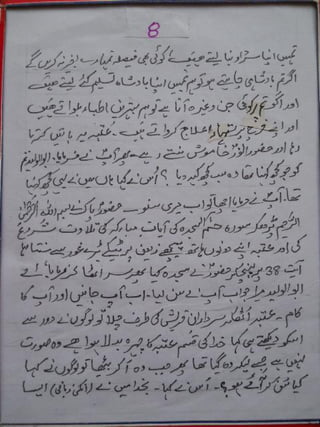 8
تمہیں اپنا سردار بنا لیتے ہیں کوئی بھی فیصلہ تمہارے بغیر نہ کریں گے
اگر تم بادشاہی چاہتے ہو تو ہم تمہیں اپنا بادشاہ تسلیم کئے لیتے ہیں
اور اگر تم پر کوئی جن وغیرہ آتا ہے تو ہم بہترین اطباء بلواتے ہیں
اور اپنے خرچ پر تمہارا علاج کرواتے ہیں۔ عتبہ یہ باتیں کرتا
رہا اور حضورؐ خاموش سنتے رہے۔ پھر آپ نے فرمایا۔ ابوالولید تم
کو جو کچھ کہنا تھا وہ سب کچھ کہہ دیا؟ اُس نے کہا ہاں میں نے یہی کچھ کہنا
تھا۔ آپ نے فرمایا اچھا تو اب میری سنو۔ حضورؐ پاک نے بسم اللہ الرحمٰن
الرحیم پڑھ کر سورہ حٰم السجدہ کی آیات مبارکہ کی تلاوت شروع
کی اور عتبہ اپنے دونوں ہاتھ پیچھے زمین پر ٹیکے بڑے غور سے سنتا رہا
آیت 38 پر پہنچ کر حضورؐ نے سجدہ کیا پھر سر اٹھا کر فرمایا۔ اے
ابوالولید میرا جواب آپ نے سن لیا۔ اب آپ جانیں اور آپ کا
کام۔ عتبہ اُٹھ کر سرداران قریش کی طرف چلا تو لوگوں نے دور سے
اسکو دیکھتے ہی کہا خدا کی قسم عتبہ کا چہرہ بدلا ہوا ہے وہ صورت
نہیں ہے جسے لیکر وہ گیا تھا پھر جب وہ آ کر بیٹھا تو لوگوں نے کہا
کیا سُن کر آئے ہو؟۔ اُس نے کہا۔ بخدا میں نے (انکی زبانی) ایسا